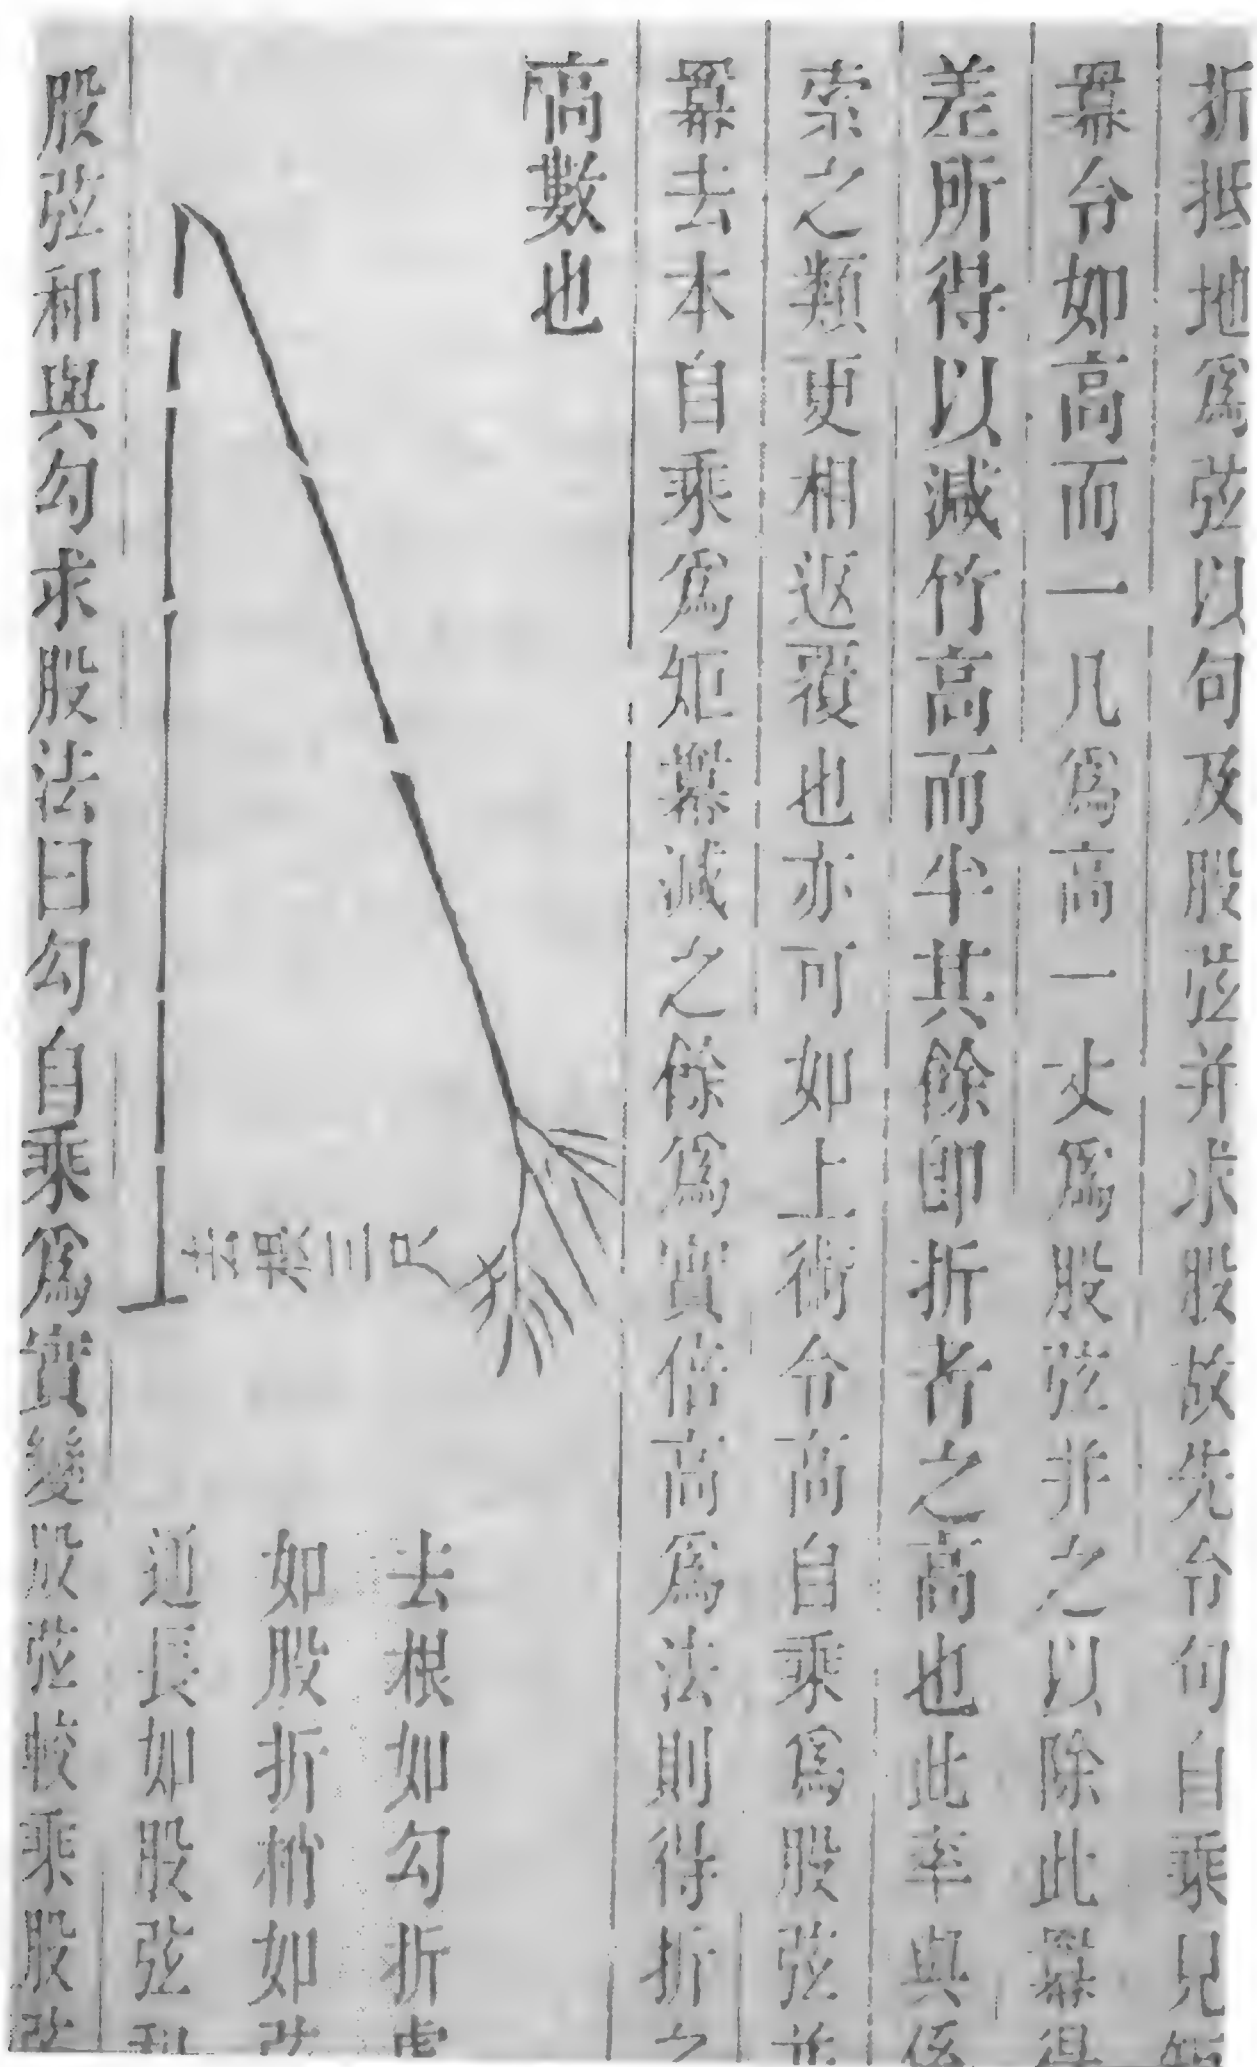 折抵地爲弦以句及股弦并求股故先令句自乘見
冪令如高而一凡爲高一丈爲股弦并之以除此冪得
差所得以減竹高而半其餘即折者之高也此率與係
索之類更相返覆也亦可如上術令高自乘爲股弦并
冪去本自乘爲矩冪減之餘爲實倍高爲法則得折之
高數也
去本三尺
去根如勾折處
如股折梢如弦
通長如股弦和
股弦和與勾求股法曰勾自乘爲實變股弦較乘股弦